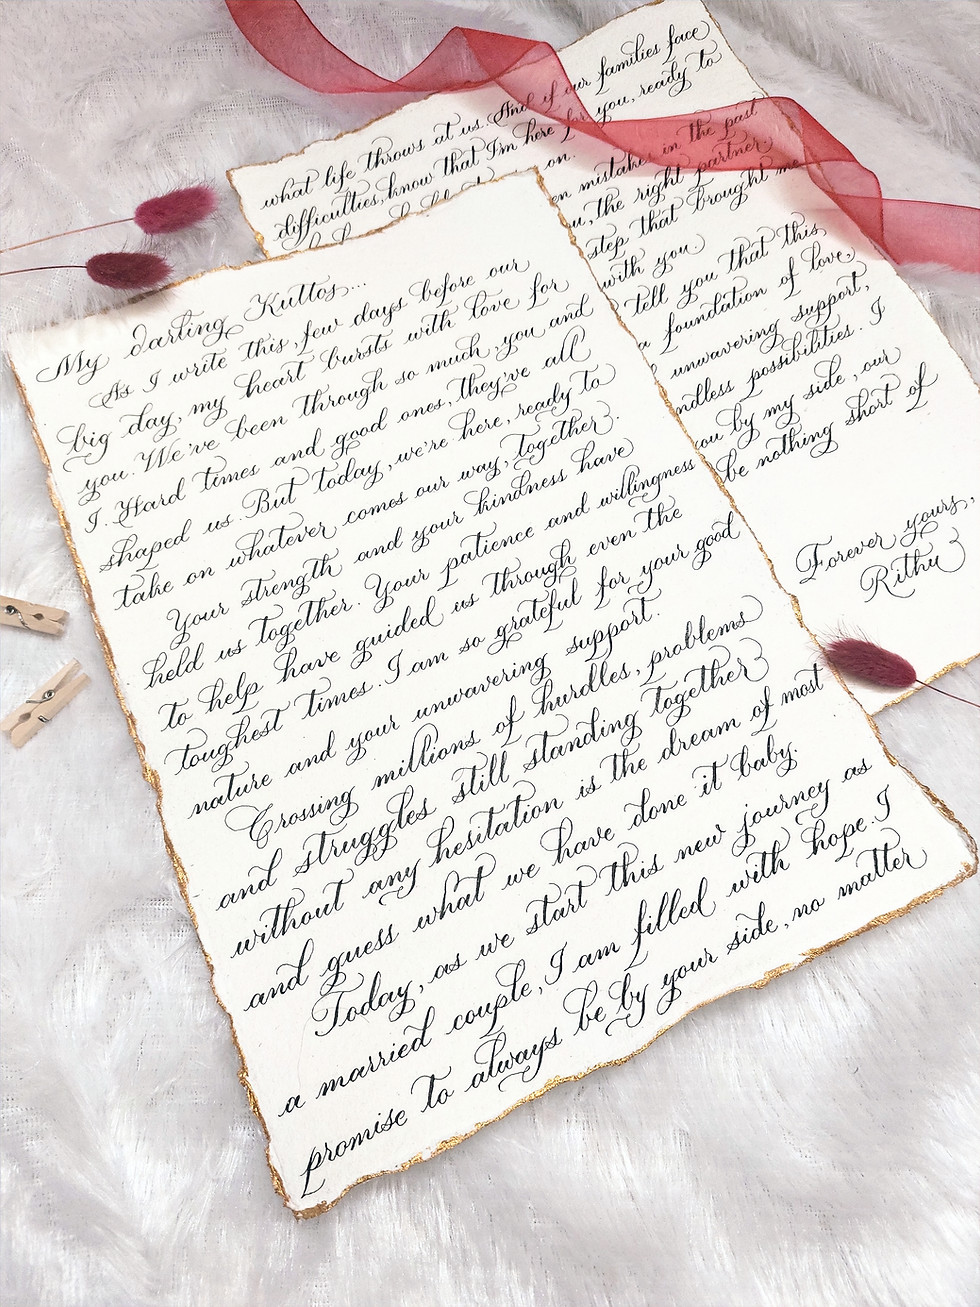 My darling Kuttos...
As I write this, few days before our
big day, my heart bursts with love for
you. We've been through so much, you and
I. Hard times and good ones, they've all
shaped us. But today, we're here, ready to
take on whatever comes our way, together.
Your strength and your kindness have
held us together. Your patience and willingness
to help have guided us through even the
toughest times. I am so grateful for your good
nature and your unwavering support.
Crossing millions of hurdles, problems
and struggles still standing together
without any hesitation is the dream of most
and guess what we have done it baby.
Today, as we start this new journey as
a married couple, I am filled with hope. I
promise to always be by your side, no matter
what life throws at us. And if our families face
difficulties, know that I'm here for you, ready to
on.
mistakes in the past
the right partner.
step that brought me
with you.
tell you that this
a foundation of love,
unwavering support,
possibilities. I
by my side, our
be nothing short of
Forever yours,
Rithu